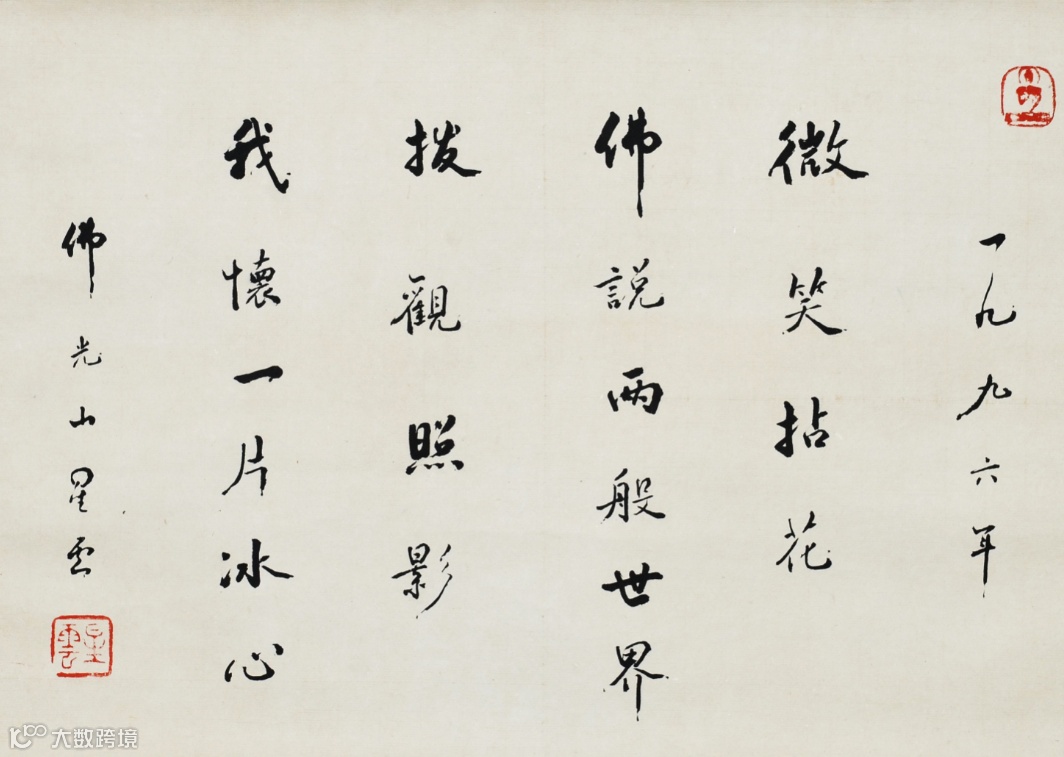 一九九六年
微笑拈花
佛說兩般世界
拨觀照影
我懷一片冰心
佛光山星雲
星雲
大数跨境